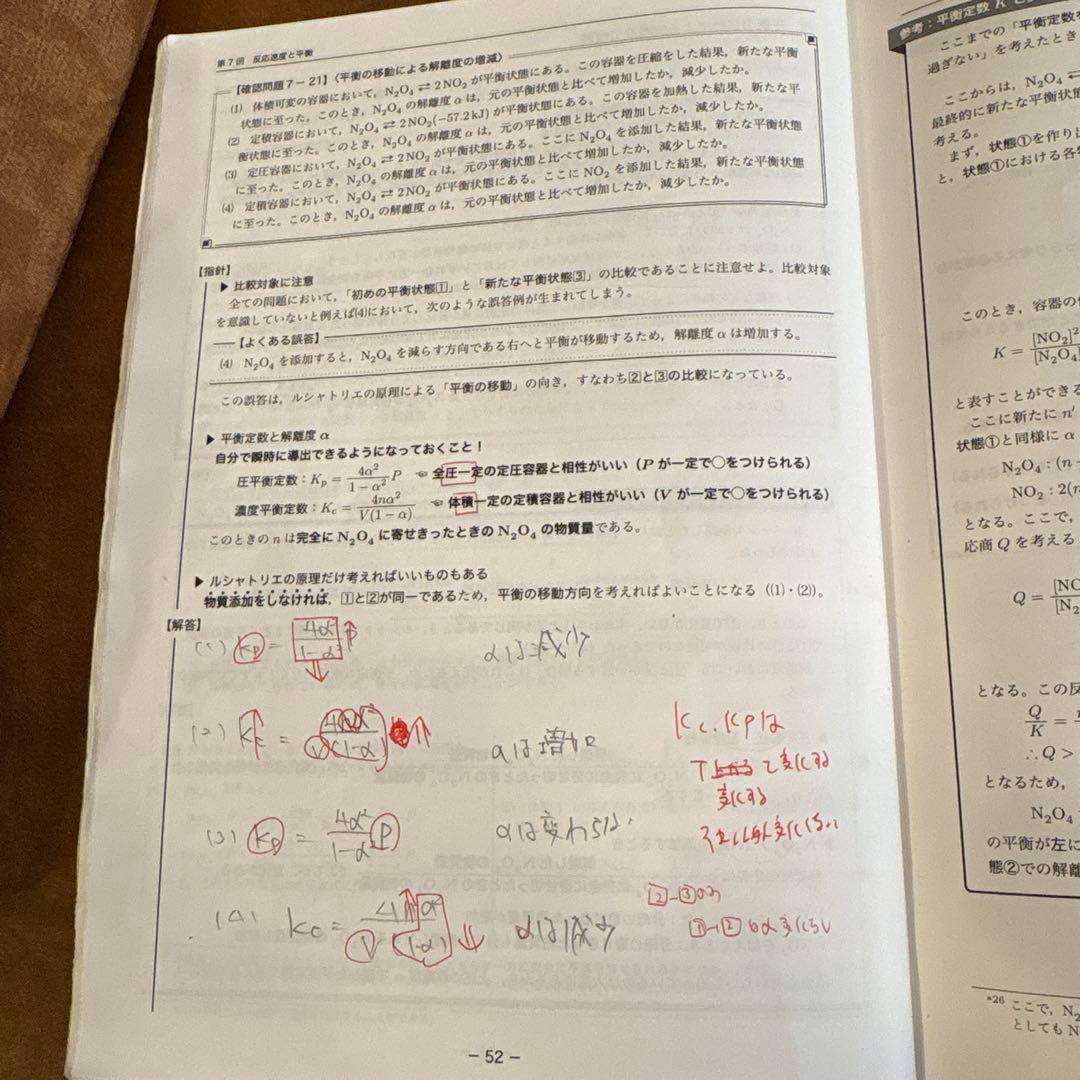 第7回 反応速度と平衡
【確認問題7−21】〈平衡の移動による解離度の増減〉
(1) 体積可変の容器において，N₂O₄ ⇄ 2NO₂ が平衡状態にある。この容器を圧縮をした結果，新たな平衡
状態に至った。このとき，N₂O₄ の解離度 α は，元の平衡状態と比べて増加したか，減少したか。
(2) 定積容器において，N₂O₄ ⇄ 2NO₂(−57.2 kJ) が平衡状態にある。この容器を加熱した結果，新たな平
衡状態に至った。このとき，N₂O₄ の解離度 α は，元の平衡状態と比べて増加したか，減少したか。
(3) 定圧容器において，N₂O₄ ⇄ 2NO₂ が平衡状態にある。ここに N₂O₄ を添加した結果，新たな平衡状態
に至った。このとき，N₂O₄ の解離度 α は，元の平衡状態と比べて増加したか，減少したか。
(4) 定積容器において，N₂O₄ ⇄ 2NO₂ が平衡状態にある。ここに NO₂ を添加した結果，新たな平衡状態
に至った。このとき，N₂O₄ の解離度 α は，元の平衡状態と比べて増加したか，減少したか。
【指針】
▶ 比較対象に注意
全ての問題において，「初めの平衡状態①」と「新たな平衡状態③」の比較であることに注意せよ。比較対象
を意識していないと例えば(4)において，次のような誤答例が生まれてしまう。
【よくある誤答】
(4) N₂O₄ を添加すると，N₂O₄ を減らす方向である右へと平衡が移動するため，解離度 α は増加する。
この誤答は，ルシャトリエの原理による「平衡の移動」の向き，すなわち②と③の比較になっている。
▶ 平衡定数と解離度 α
自分で瞬時に導出できるようになっておくこと！
圧平衡定数：Kp = 4α²/(1−α²) P ☜ 全圧一定の定圧容器と相性がいい（P が一定で○をつけられる）
濃度平衡定数：Kc = 4nα²/V(1−α) ☜ 体積一定の定積容器と相性がいい（V が一定で○をつけられる）
このときの n は完全に N₂O₄ に寄せきったときの N₂O₄ の物質量である。
▶ ルシャトリエの原理だけ考えればいいものもある
物質添加をしなければ，①と②が同一であるため，平衡の移動方向を考えればよいことになる（(1)・(2)）。
【解答】
(1) Kp = 4α²/1−α² P↑ αは減少
(2) Kc = 4nα²/V(1−α) ↑ αは増加
Kc, Kpは
Tで変化する
変化する
(3) Kp = 4α²/1−α² P αは変わらない
(4) Kc = 4nα²/V(1−α) ↓ αは減少
②→③のみ
− 52 −
参考：平衡定数 K
ここまでの「平衡定数
過ぎない」を考えたとき
ここからは，N₂O₄ ⇄
最終的に新たな平衡状態
考える。
まず，状態①を作り
と，状態①における各
このとき，容器の
K = [NO₂]²/[N₂O₄]
と表すことができる
ここに新たに n′
状態①と同様に α
N₂O₄：(n −
NO₂：2(n
となる。ここで，
応商 Q を考える
Q = [NO/[N₂
となる。この反
Q/K =
∴ Q >
となるため，
N₂O₄
の平衡が左に
態②での解離
*26 ここで，N₂
としても N